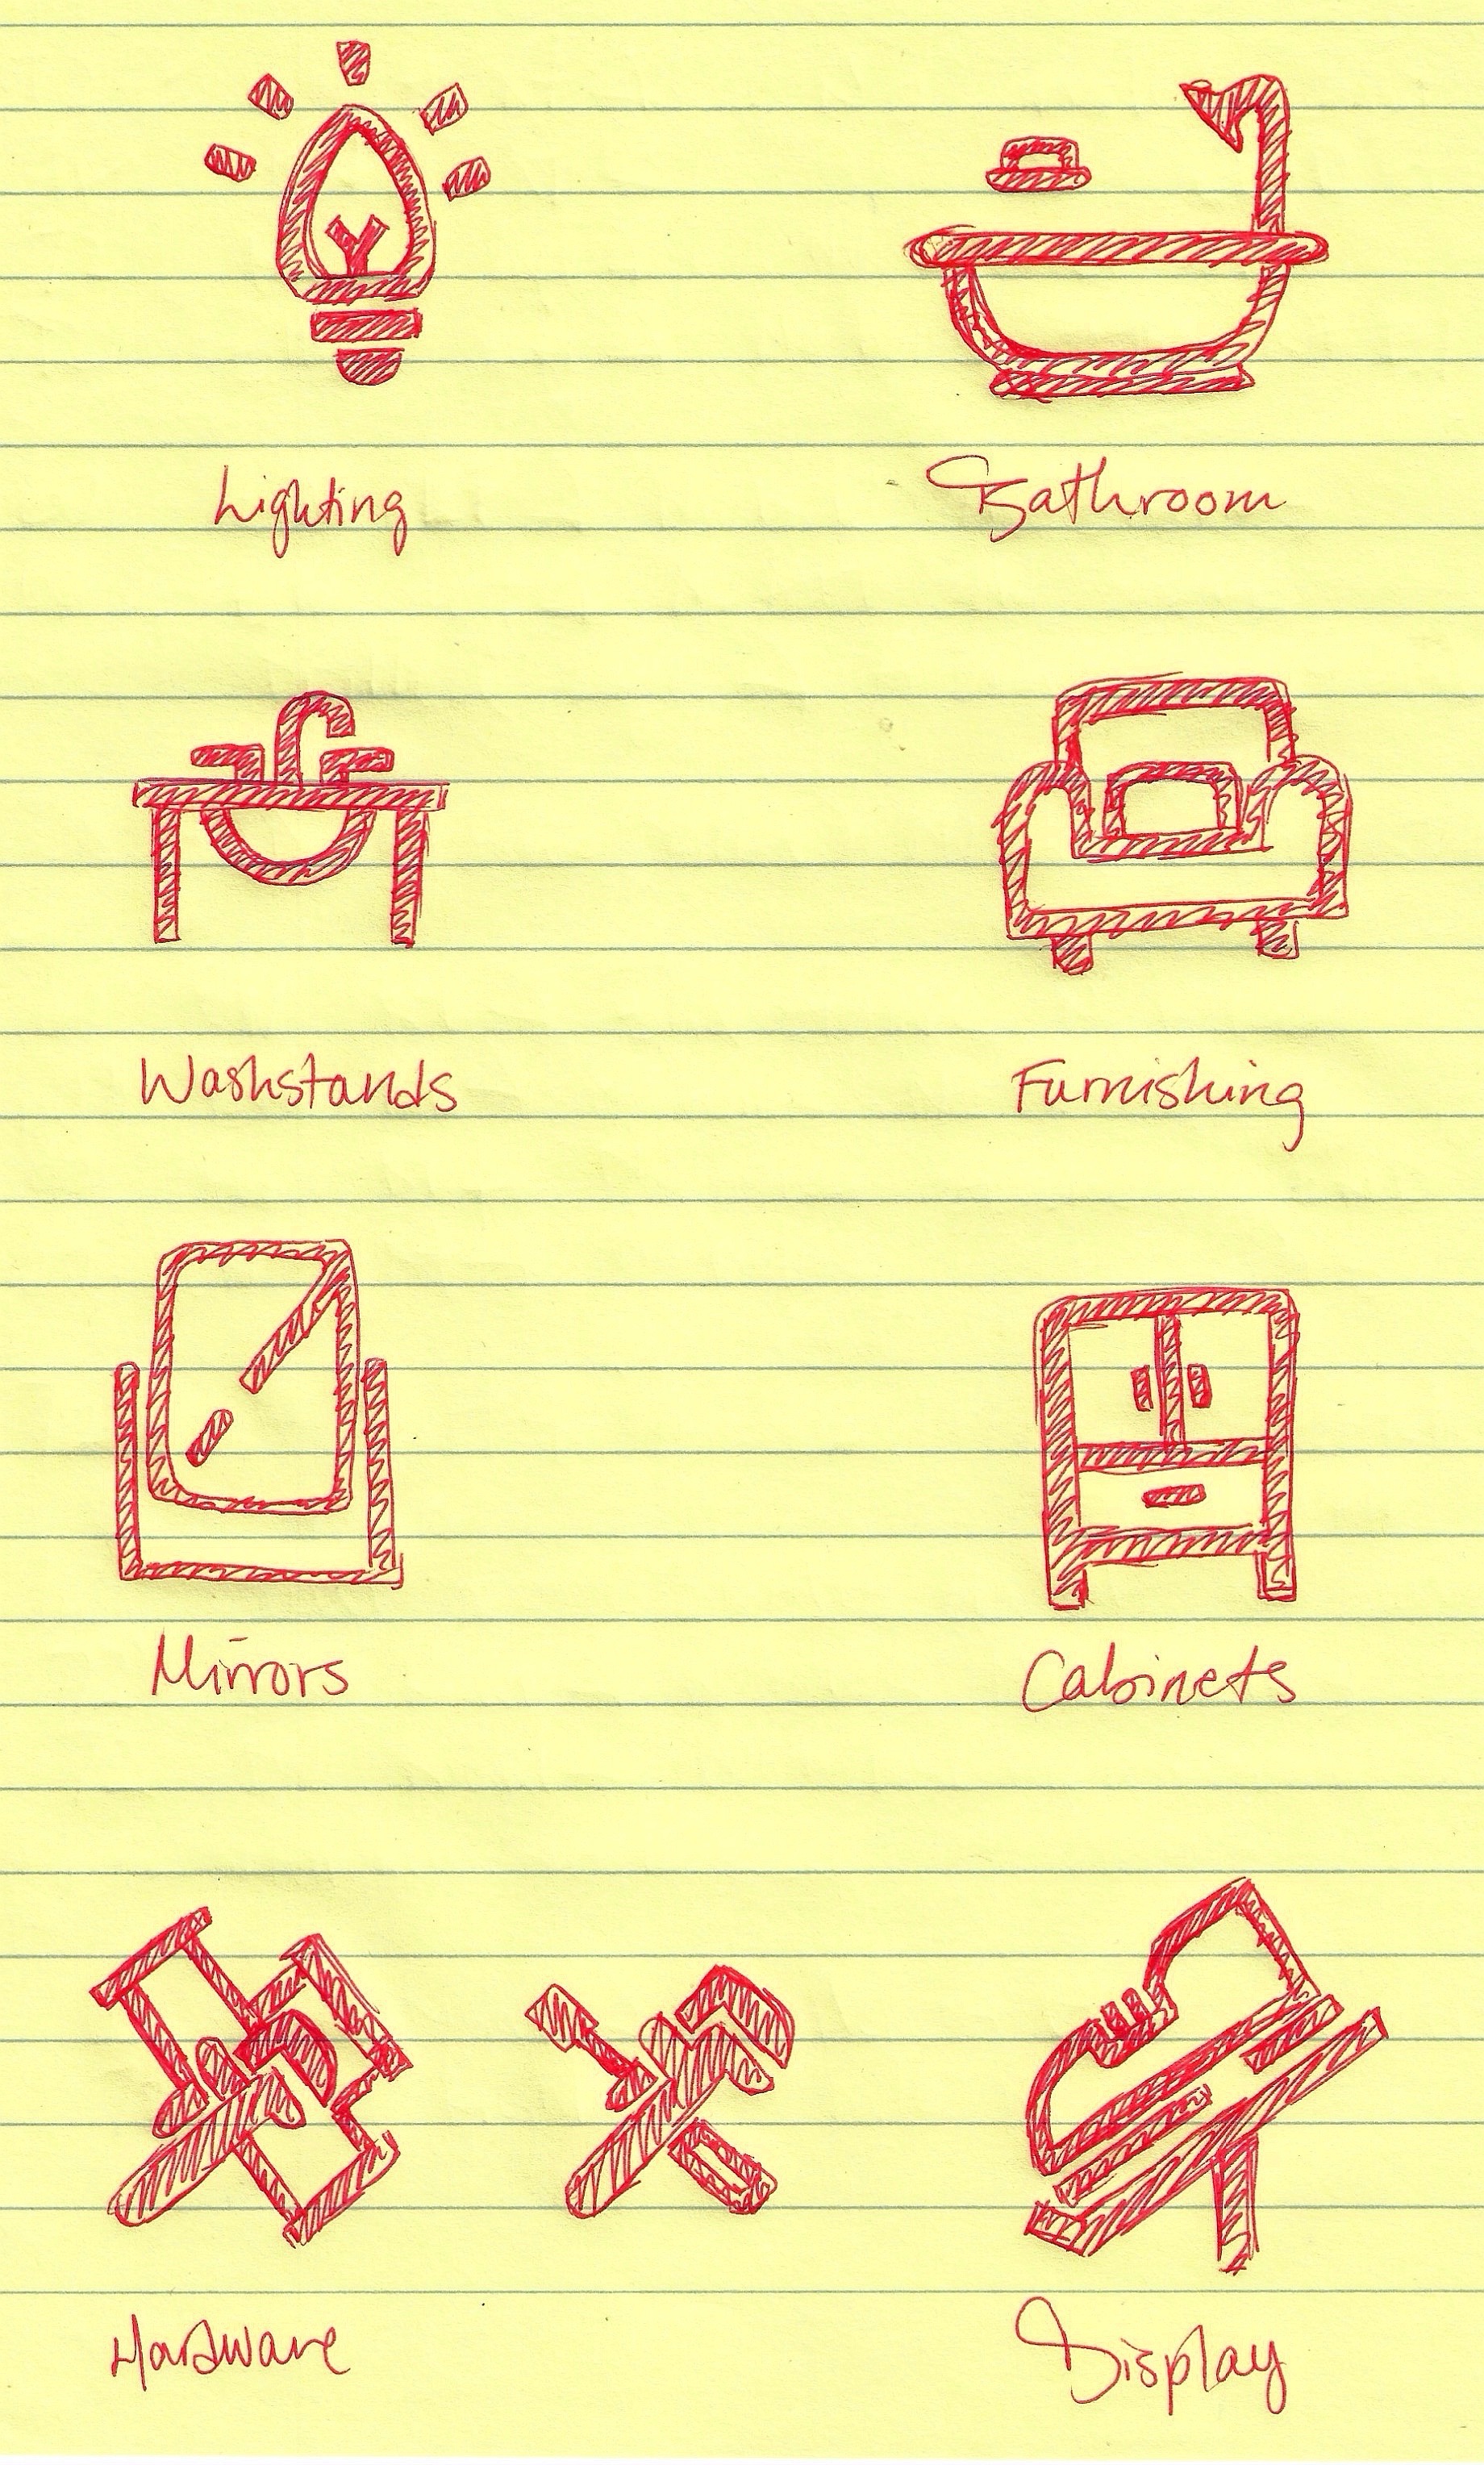 Lighting
Bathroom
Washstands
Furnishing
Mirrors
Cabinets
Hardware
Display